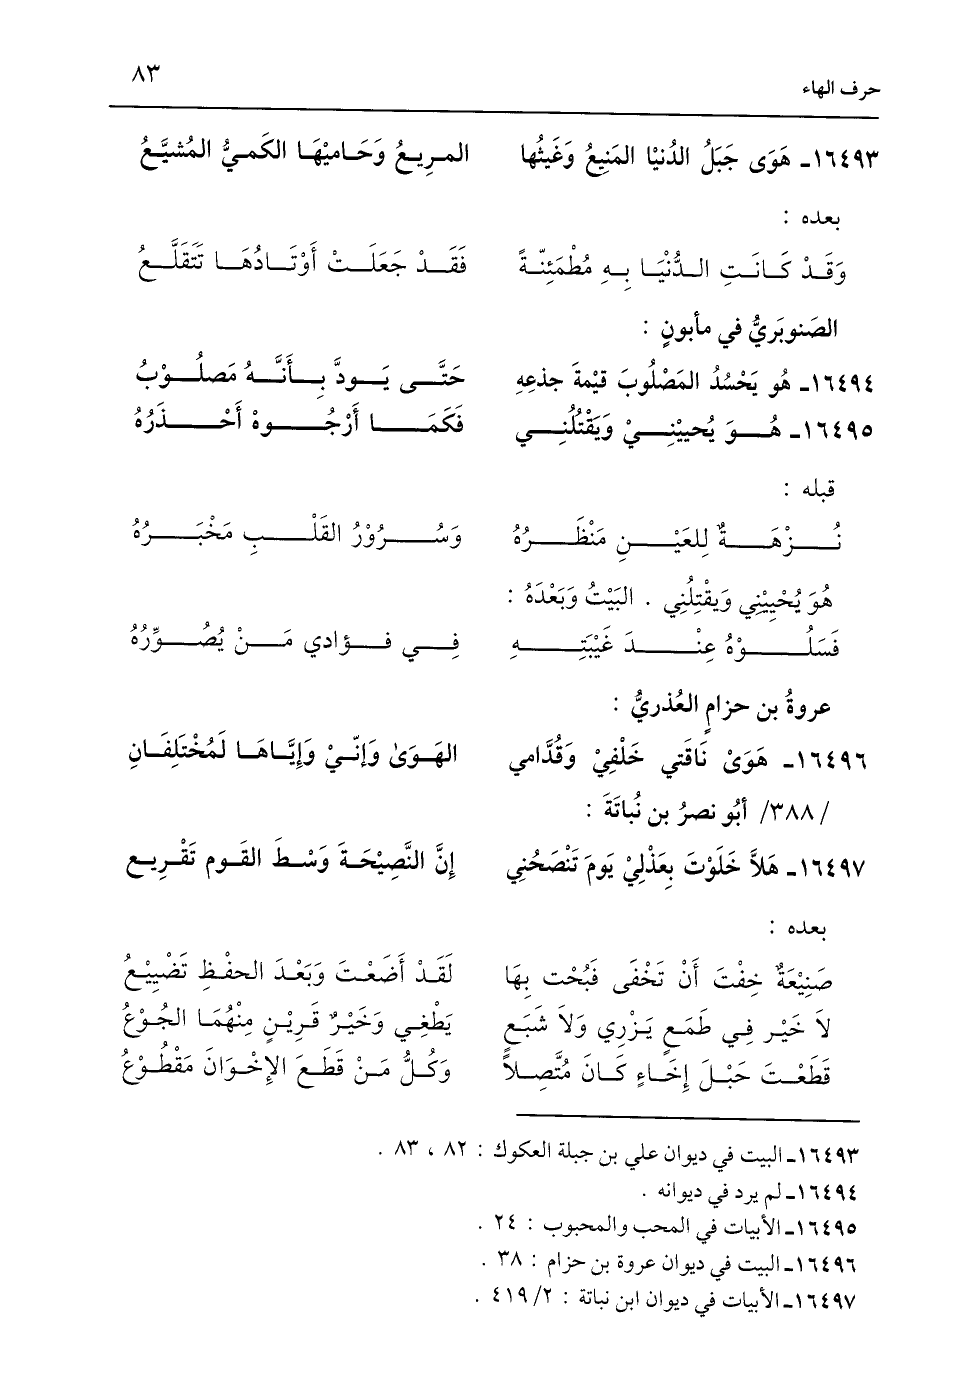 حرف الهاء ٨٣
١٦٤٩٣ـ هَوَى جَبَلُ الدُنيْا المَنِيعُ وَغَيثُها المرِيعُ وَحَاميْهَا الكَميُّ المُشيَّعُ
بعده :
وَقَدْ كَانَتِ الدُّنْيَا بِهِ مُطْمَئِنّةً فَقَدْ جَعَلَتْ أَوْتَادُهَا تَتَقَلَّعُ
الصَنوبَريُّ في مأبونٍ :
١٦٤٩٤ـ هُو يَحْسُدُ المَصْلُوبَ قيْمةَ جذعِهِ حَتَّى يَودَّ بِأَنَّهُ مَصلُوْبُ
١٦٤٩٥ـ هُوَ يُحييْنِيْ وَيَقْتُلُنِي فَكَمَا أَرْجُوهْ أَحْذَرُهُ
قبله :
نُزْهَةٌ لِلعَيْنِ مَنْظَرُهُ وَسُرُوْرُ القَلْبِ مَخْبَرُهُ
هُوَ يُحْيِيْنِي وَيقْتِلُنِي . البَيْتُ وَبَعْدَهُ :
فَسَلُوْهُ عِنْدَ غَيْبَتِهِ فِي فؤادي مَنْ يُصُوِّرُهُ
عروةُ بن حزامٍ العُذريُّ :
١٦٤٩٦ـ هَوَىْ نَاقتي خَلْفِيْ وَقُدَّامي الهَوَىٰ وَإنّيْ وَإيَّاهَا لَمُخْتَلِفَانِ
/٣٨٨/ أبُو نصرُ بن نُباتَةَ :
١٦٤٩٧ـ هَلاَّ خَلَوْتَ بِعَذْلِيْ يَومَ تَنْصَحُنِي إنَّ النَّصِيْحَةَ وَسْطَ القَوم تَقْرِيع
بعده :
صَنِيْعَةٌ خِفْتَ أَنْ تَخْفَى فَبُحْت بِهَا لَقَدْ أَضَعْتَ وَبَعْدَ الحفْظِ تَضْييْعُ
لاَ خَيْر فِي طَمَعٍ يَزْرِي وَلاَ شَبَعٍ يَطْغِي وَخَيْرٌ قَرِيْنٍ مِنْهُمَا الجُوْعُ
قَطَعْتَ حَبْلَ إخَاءٍ كَانَ مُتَّصِلاً وَكُلُّ مَنْ قَطَعَ الإخْوَانَ مَقْطُوْعُ
١٦٤٩٣ـ البيت في ديوان علي بن جبلة العكوك : ٨٢ ، ٨٣ .
١٦٤٩٤ـ لم يرد في ديوانه .
١٦٤٩٥ـ الأبيات في المحب والمحبوب : ٢٤ .
١٦٤٩٦ـ البيت في ديوان عروة بن حزام : ٣٨ .
١٦٤٩٧ـ الأبيات في ديوان ابن نباتة : ٢/ ٤١٩ .